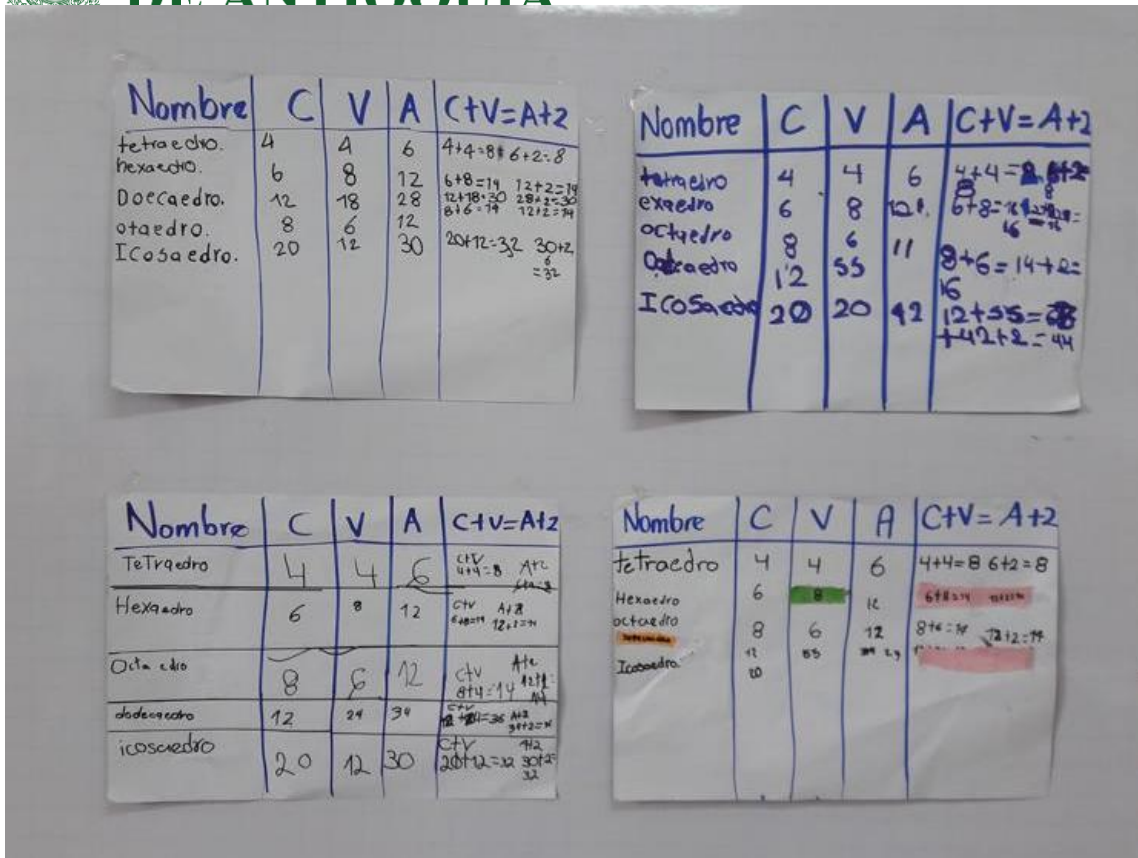 DE ANTIOQUIA
Nombre C V A C+V=A+2
tetraedro. 4 4 6 4+4=8 6+2=8
hexaedro. 6 8 12 6+8=14 12+2=14
Doecaedro. 12 18 28 12+18=30 28+2=30
otaedro. 8 6 12 8+6=14 12+2=14
Icosaedro. 20 12 30 20+12=32 30+2
=32
Nombre C V A C+V=A+2
tetraedro 4 4 6 4+4=8 6+2=
8 8
exaedro 6 8 12 6+8=16
16
octaedro 8 6 11 8+6=14+2=
16
12 55 12+55=
Icosaedro 20 20 42 +42+2=44
Nombre C V A C+V=A+2
TeTraedro 4 4 6 C+V 4+4=8 A+2
Hexaedro 6 8 12 C+V 6+8=14 A+2 12+2=14
Octaedro 8 6 12 C+V 8+4=14 A+2 12+2=
14
dodecaedro 12 24 34 C+V +24=36 A+2 34+2=
icosaedro 20 12 30 C+V 20+12=32 A+2 30+2=
32
Nombre C V A C+V=A+2
tetraedro 4 4 6 4+4=8 6+2=8
Hexaedro 6 8 12 6+8=14
octaedro 8 6 12 8+6=14 12+2=14
12 55 29
Icosaedro. 20